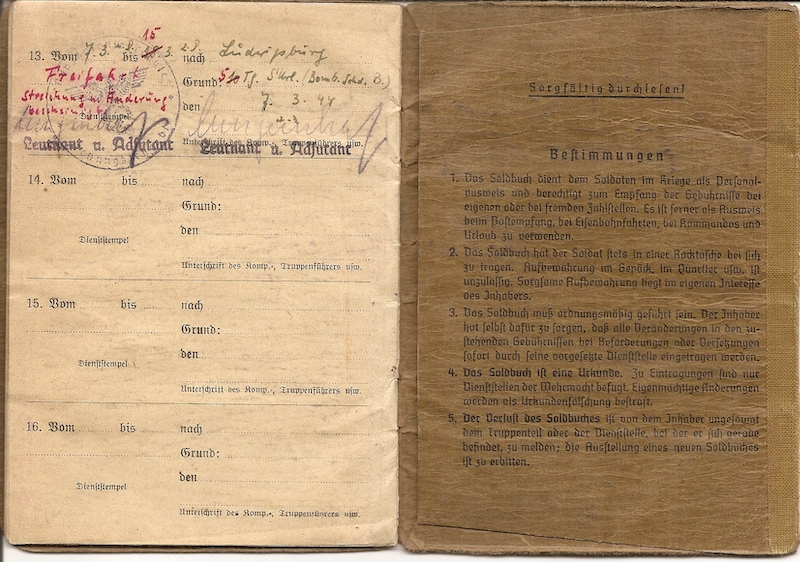 15
13. Vom 7.3. bis 18.3. nach Ludwigsburg
Freifahrt
Grund: 5 Tg. (Bomb. Schd. B.)
Streichung u. Änderung
bescheinigt
den 7. 3. 44
Dienststempel
Unterschrift des Komp.-, Truppenführers usw.
Leutnant u. Adjutant
Leutnant u. Adjutant
14. Vom bis nach
Grund:
den
Dienststempel
Unterschrift des Komp.-, Truppenführers usw.
15. Vom bis nach
Grund:
den
Dienststempel
Unterschrift des Komp.-, Truppenführers usw.
16. Vom bis nach
Grund:
den
Dienststempel
Unterschrift des Komp.-, Truppenführers usw.
Sorgfältig durchlesen!
Bestimmungen
1. Das Soldbuch dient dem Soldaten im Kriege als Personal-
ausweis und berechtigt zum Empfang der Gebührnisse bei
eigenen oder bei fremden Zahlstellen. Es ist ferner als Ausweis
beim Postempfang, bei Eisenbahnfahrten, bei Kommandos und
Urlaub zu verwenden.
2. Das Soldbuch hat der Soldat stets in einer Rocktasche bei sich
zu tragen. Aufbewahrung im Gepäck, im Quartier usw. ist
unzulässig. Sorgsame Aufbewahrung liegt im eigenen Interesse
des Inhabers.
3. Das Soldbuch muß ordnungsmäßig geführt sein. Der Inhaber
hat selbst dafür zu sorgen, daß alle Veränderungen in den zu-
stehenden Gebührnissen bei Beförderungen oder Versetzungen
sofort durch seine vorgesetzte Dienststelle eingetragen werden.
4. Das Soldbuch ist eine Urkunde. Zu Eintragungen sind nur
Dienststellen der Wehrmacht befugt. Eigenmächtige Änderungen
werden als Urkundenfälschung bestraft.
5. Der Verlust des Soldbuches ist von dem Inhaber ungesäumt
dem Truppenteil oder der Dienststelle, bei der er sich gerade
befindet, zu melden; die Ausstellung eines neuen Soldbuches
ist zu erbitten.